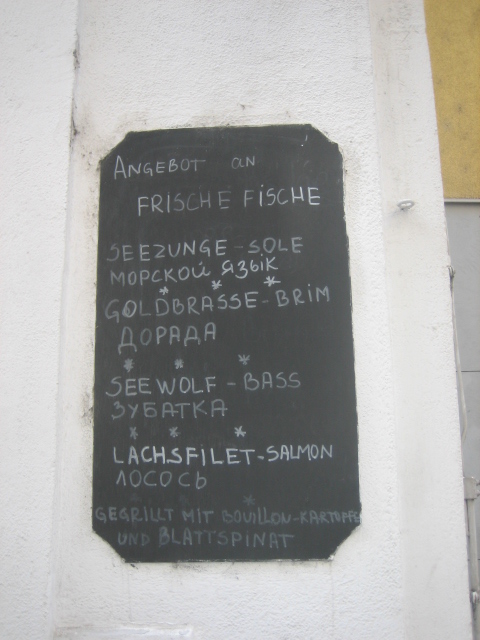 ANGEBOT an
FRISCHE FISCHE
SEEZUNGE - SOLE
МОРСКОЙ ЯЗЫК
* * *
GOLDBRASSE - BRIM
ДОРАДА
* * *
SEEWOLF - BASS
ЗУБАТКА
* * *
LACHSFILET - SALMON
ЛОСОСЬ
*
GEGRILLT MIT BOUILLON-KARTOFFE
UND BLATTSPINAT